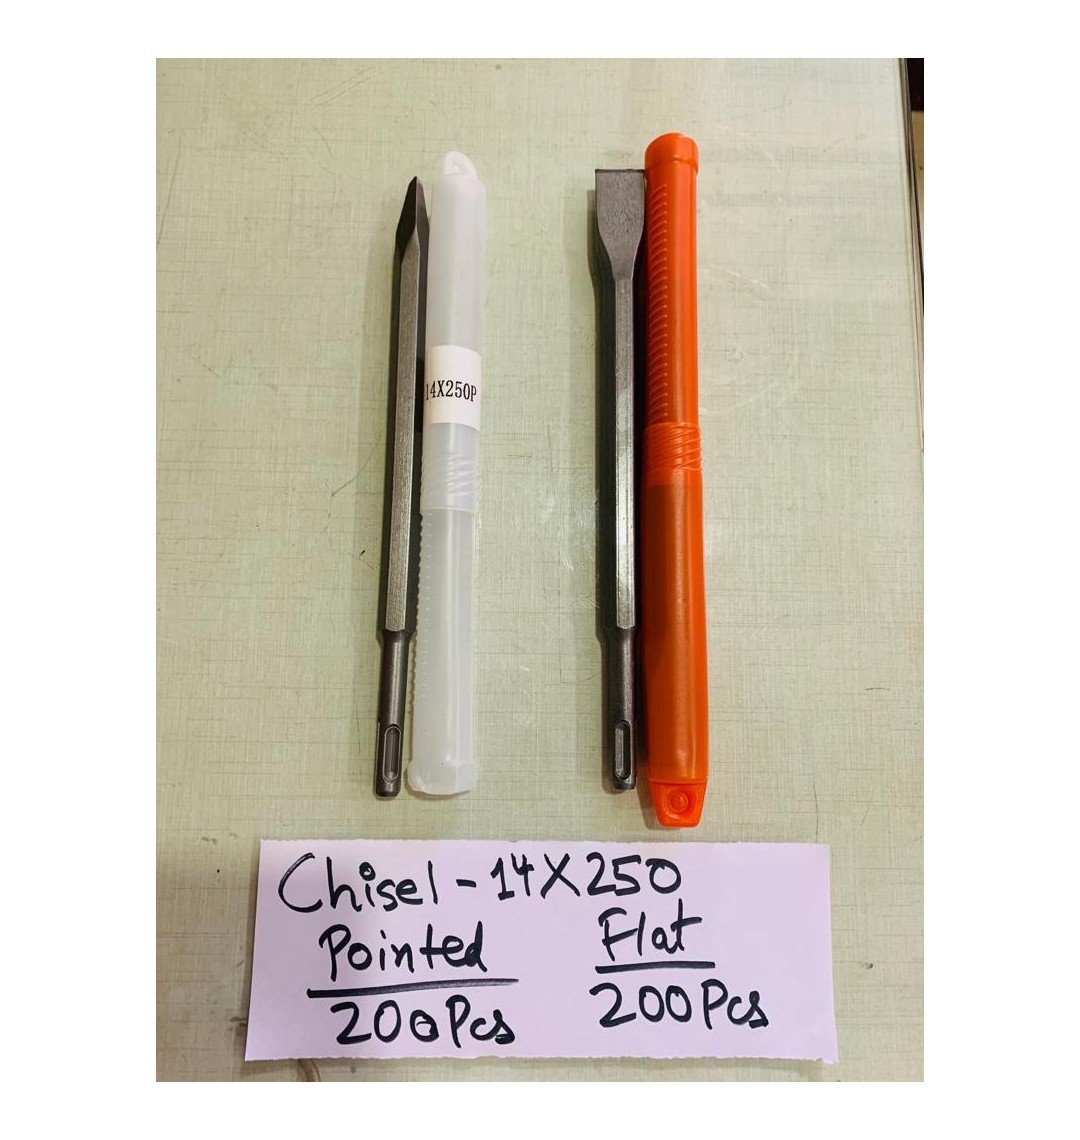 14X250P
Chisel - 14X250
Pointed Flat
200Pcs 200Pcs